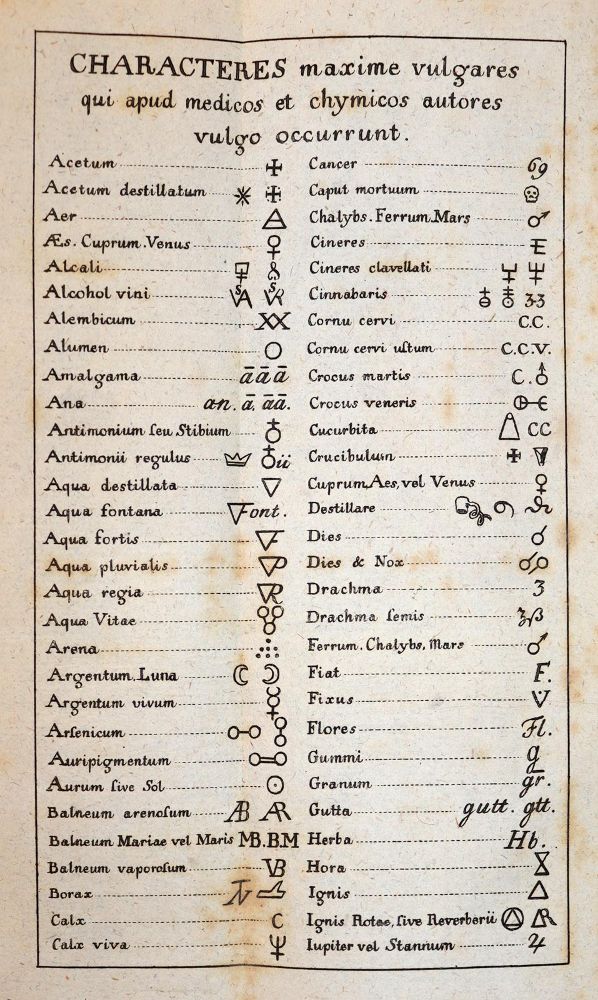 CHARACTERES maxime vulgares
qui apud medicos et chymicos autores
vulgo occurrunt.
Acetum
Acetum destillatum
Aer
Æs. Cuprum. Venus
Alcali
Alcohol vini
Alembicum XX
Alumen
Amalgama ā ā ā
Ana an. ā. āā.
Antimonium ſeu Stibium
Antimonii regulus
Aqua destillata
Aqua fontana Font.
Aqua fortis
Aqua pluvialis
Aqua regia
Aqua Vitae
Arena
Argentum. Luna
Argentum vivum
Arſenicum
Auripigmentum
Aurum ſive Sol
Balneum arenoſum
Balneum Mariae vel Maris MB. B.M
Balneum vaporoſum VB
Borax
Calx C
Calx viva
Cancer 69
Caput mortuum
Chalybs. Ferrum. Mars ♂
Cineres
Cineres clavellati
Cinnabaris 33
Cornu cervi C.C.
Cornu cervi uſtum C.C.V.
Crocus martis C.
Crocus veneris
Cucurbita CC
Crucibulum
Cuprum, Aes, vel Venus ♀
Destillare
Dies
Dies & Nox
Drachma ʒ
Drachma ſemis ʒß
Ferrum. Chalybs, Mars ♂
Fiat F.
Fixus
Flores Fl.
Gummi g
Granum gr.
Gutta gutt. gtt.
Herba Hb.
Hora
Ignis △
Ignis Rotae, ſive Reverberii
Iupiter vel Stannum ♃